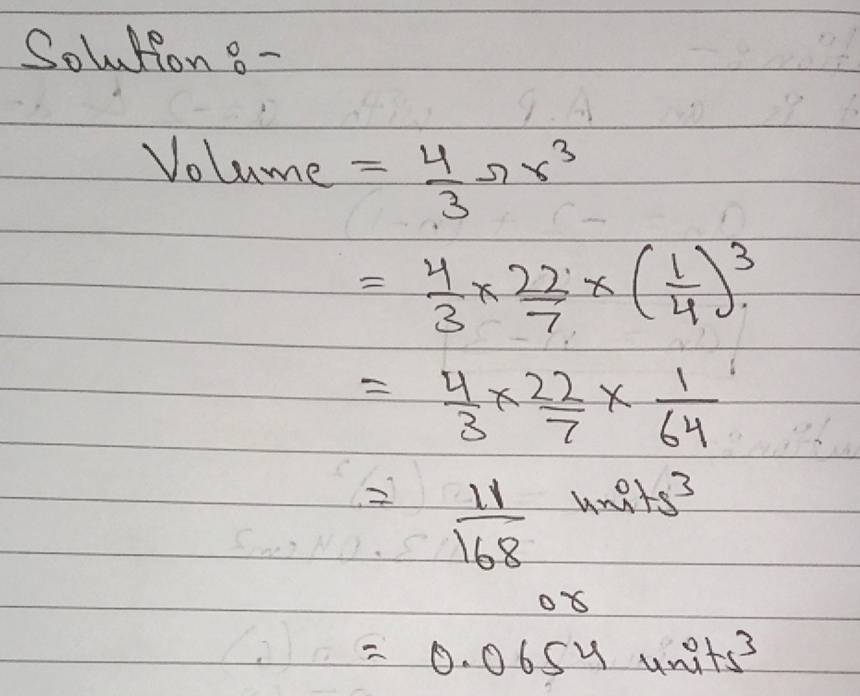 Solution :-
Volume = 4/3 π r³
= 4/3 × 22/7 × (1/4)³
= 4/3 × 22/7 × 1/64
= 11/168 units³
or
= 0.0654 units³